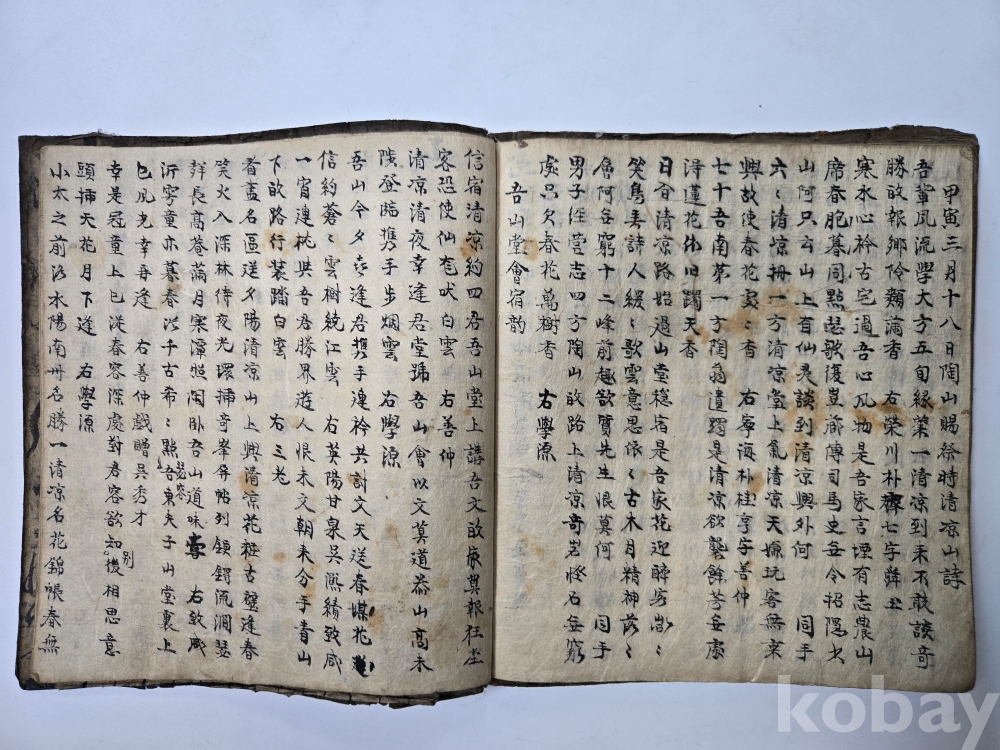 甲寅三月十八日陶山賜祭時清凉山詩
吾輩風流學大方五旬緣業一清凉到来不敢談奇
勝故報鄉伶頰滿香　右榮川朴齊七字舜玉
寒水心衿古宅過吾心凡物是吾家言堙有志農山
席春服暮同點瑟歌復豈廊傳司馬史吾令招隱
山阿只云山上有仙灵談到清凉興外何　同手
六六清凉冊一方清凉堂上氣清凉天嫌玩客無
興故使春花寂寂香　右寧海朴桂亨字善仲
七十吾南第一方陶翁遺躅是清凉欲襲餘芳妄
淂蓮花依旧躅天香
日合清凉路始過山堂穩宿是吾家花迎醉客
笑鳥善詩人緩緩歌雲意思依依古木月精神
窮十二峰前趣欲質先生恨莫何　同手
男子經營志四方陶山故路上清凉奇岩怪石每
處只欠春花萬樹香　右學源
吾山堂會宿韵
信宿清凉約四君吾山堂上講吾文故
客恐使仙尨吠白雲　右善仲
清凉清夜幸逢君堂號吾山會以文莫道泰山高未
陟登臨携手步烟雲　右學源
吾山今夕喜逢君携手連衿共討文天送春媒花
信約蒼蒼雲樹繞江雲　右英陽甘泉吳熙績致咸
一宵連枕與吾君勝界遊人恨未文朝来分手青山
下故路行裝踏白雲　右三老
看盡名區送夕陽清凉山上興清凉花粧古壁逢春
笑火入深林侍夜光環揷奇峯屏帖列鎖鍔流澗瑟
聲長高菴滿月寒潭照閑卧吾山道味長　右致咸
沂雩童亦暮春以千古希希點瑟容吾東夫子山堂裏上
巳風光幸再逢　右善仲戲贈吳秀才
幸是冠童上巳從春容深處對君容欲知別後相思意
頭揷天花月下逢　右學源
小太之前洛水陽南州名勝一清凉名花錦帳春無
kobay